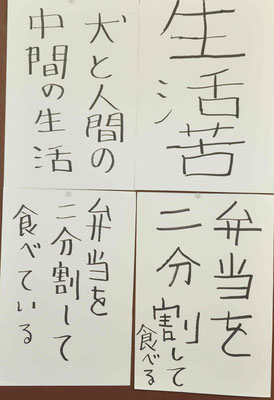 生活苦
犬と人間の
中間の生活
弁当を
二分割して
食べる
弁当を
二分割して
食べている